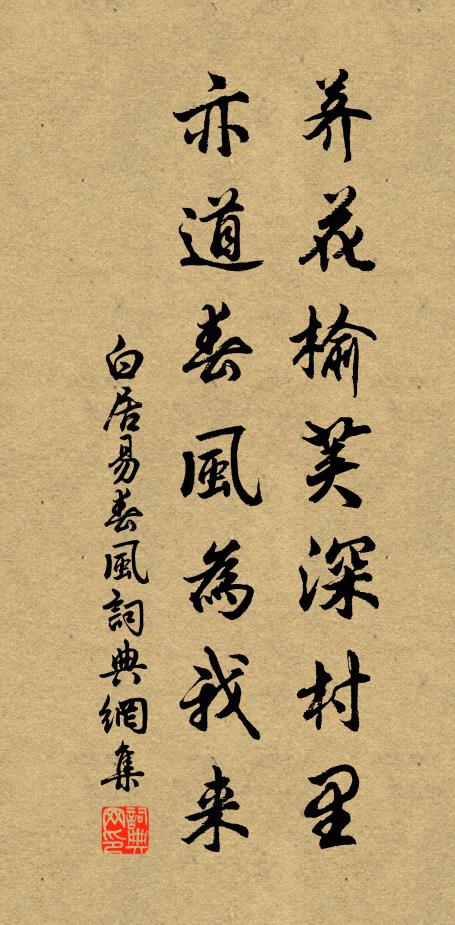 荠花榆荚深村里
亦道春風為我来
白居易春風詞典網集
詞典
网印